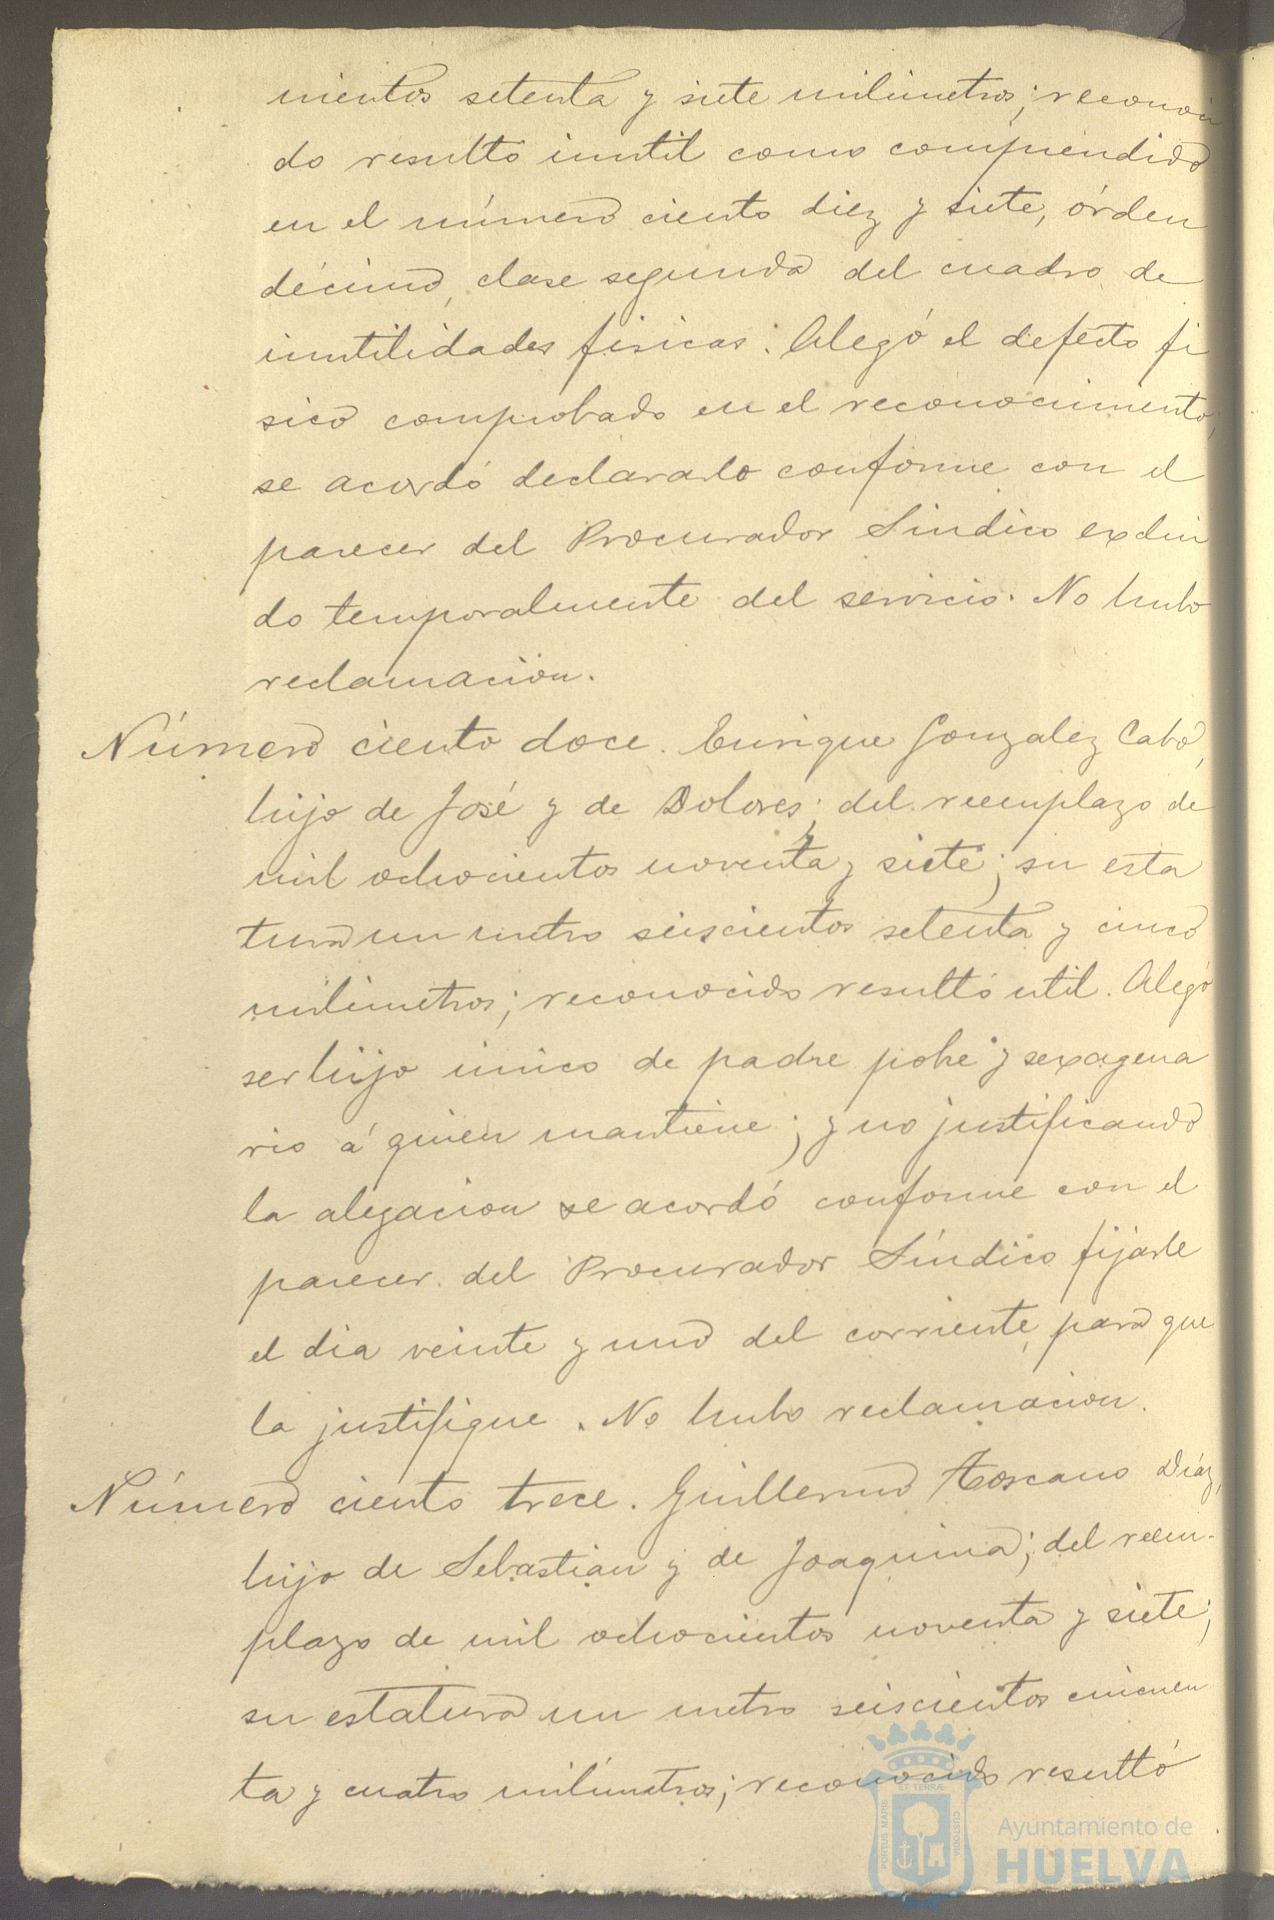 nientos setenta y siete milimetros; reconoci
do resultó inutil como comprendido
en el número ciento diez y siete, órden
décimo, clase segunda del cuadro de
inutilidades fisicas. Alegó el defecto fi
sico comprobado en el reconocimiento;
se acordó declararlo conforme con el
parecer del Procurador Sindico exclui
do temporalmente del servicio. No hubo
reclamacion.
Número ciento doce. Enrique Gonzalez Cabó,
hijo de José y de Dolores; del reemplazo de
mil ochocientos noventa y siete; su esta
tura un metro seiscientos setenta y cinco
milimetros; reconocido resultó util. Alegó
ser hijo único de padre pobre y sexagena
rio á quien mantiene; y no justificando
la alegacion se acordó conforme con el
parecer del Procurador Síndico fijarle
el dia veinte y uno del corriente para que
la justifique. No hubo reclamacion.
Número ciento trece. Guillermo Toscano Díaz,
hijo de Sebastian y de Joaquina; del reem-
plazo de mil ochocientos noventa y siete;
su estatura un metro seiscientos cincuen
ta y cuatro milímetros; reconocido resultó
PORTUS MARIS ET TERRÆ CUSTODIA
Ayuntamiento de
HUELVA